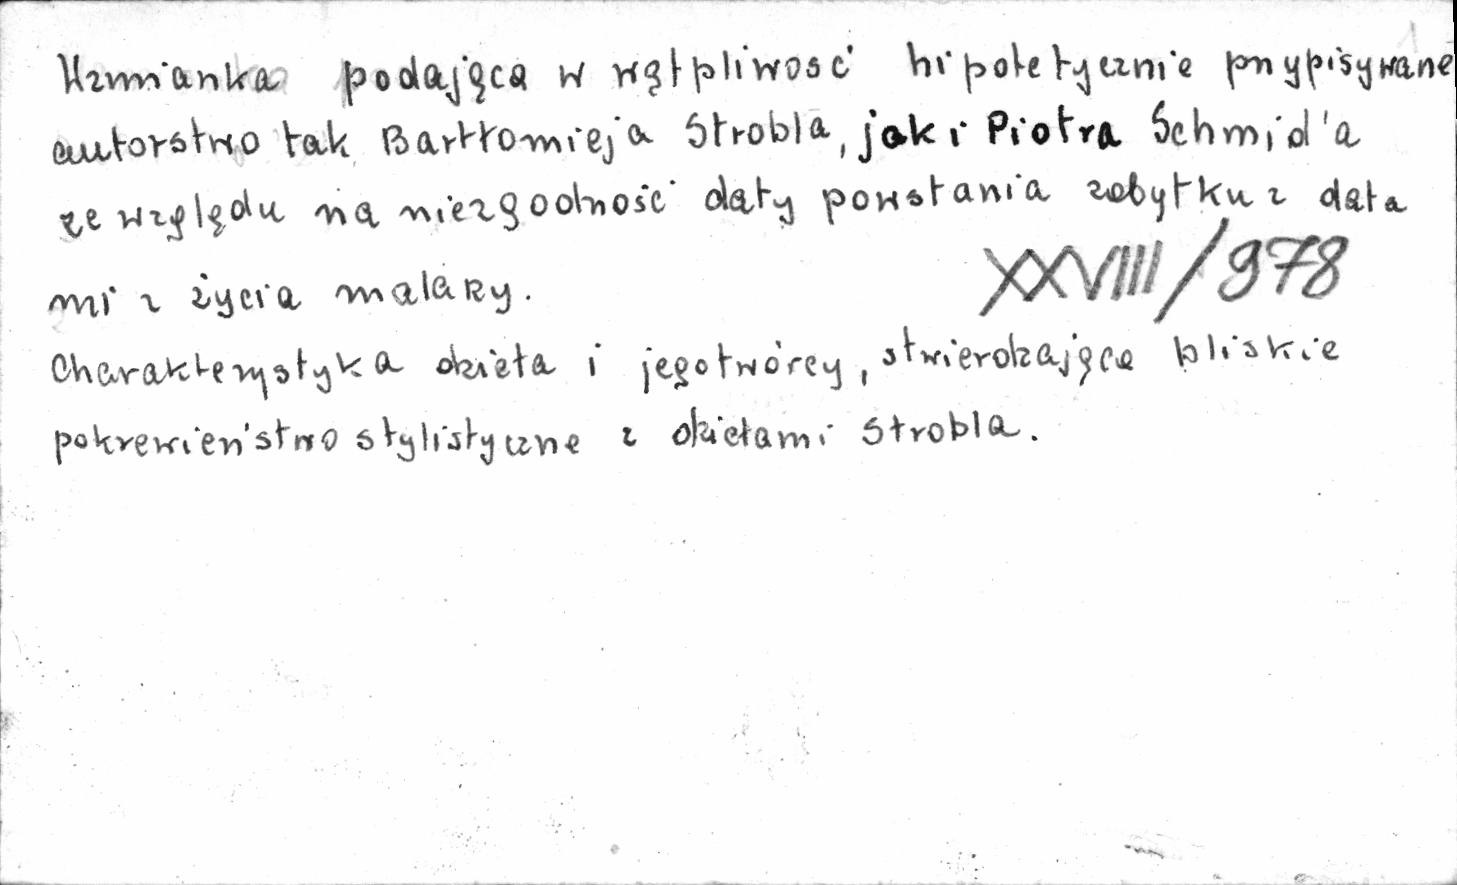 Wzmianka podająca w wątpliwość hipotetycznie przypisywane
autorstwo tak Bartłomieja Strobla, jak i Piotra Schmid'a
ze względu na niezgodność daty powstania zabytku z data
mi z życia malarzy.
XXVIII/978
Charakterystyka dzieła i jego twórcy, stwierdzająca bliskie
pokrewieństwo stylistyczne z dziełami Strobla.